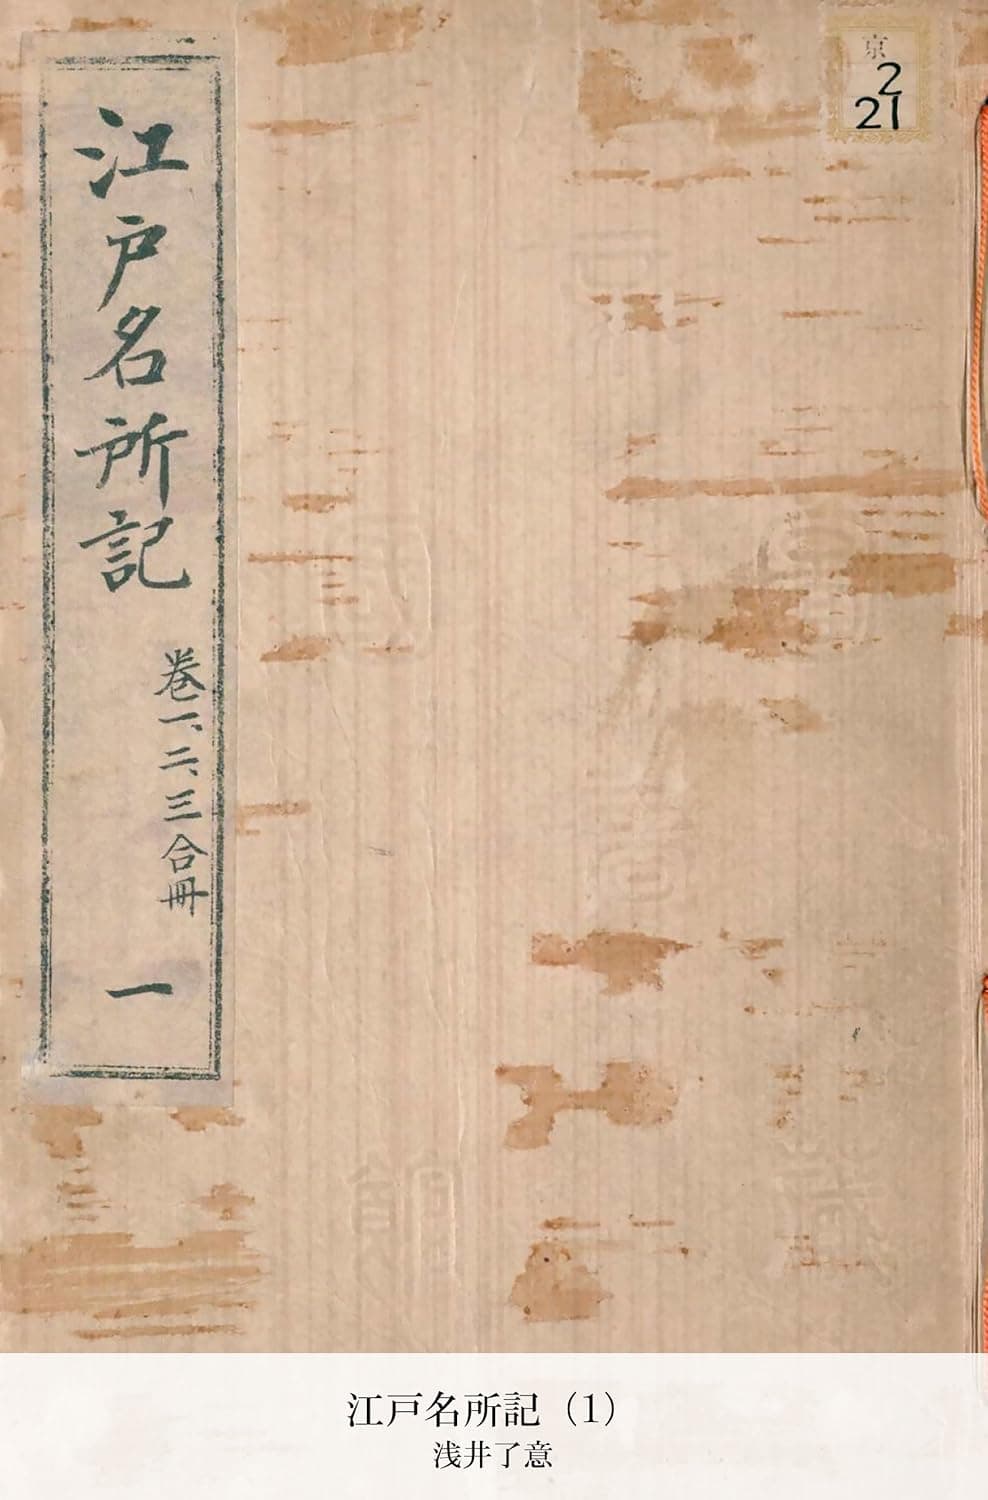 京
2
21
江戸名所記
巻一、二、三合冊
一
江戸名所記（1）
浅井了意